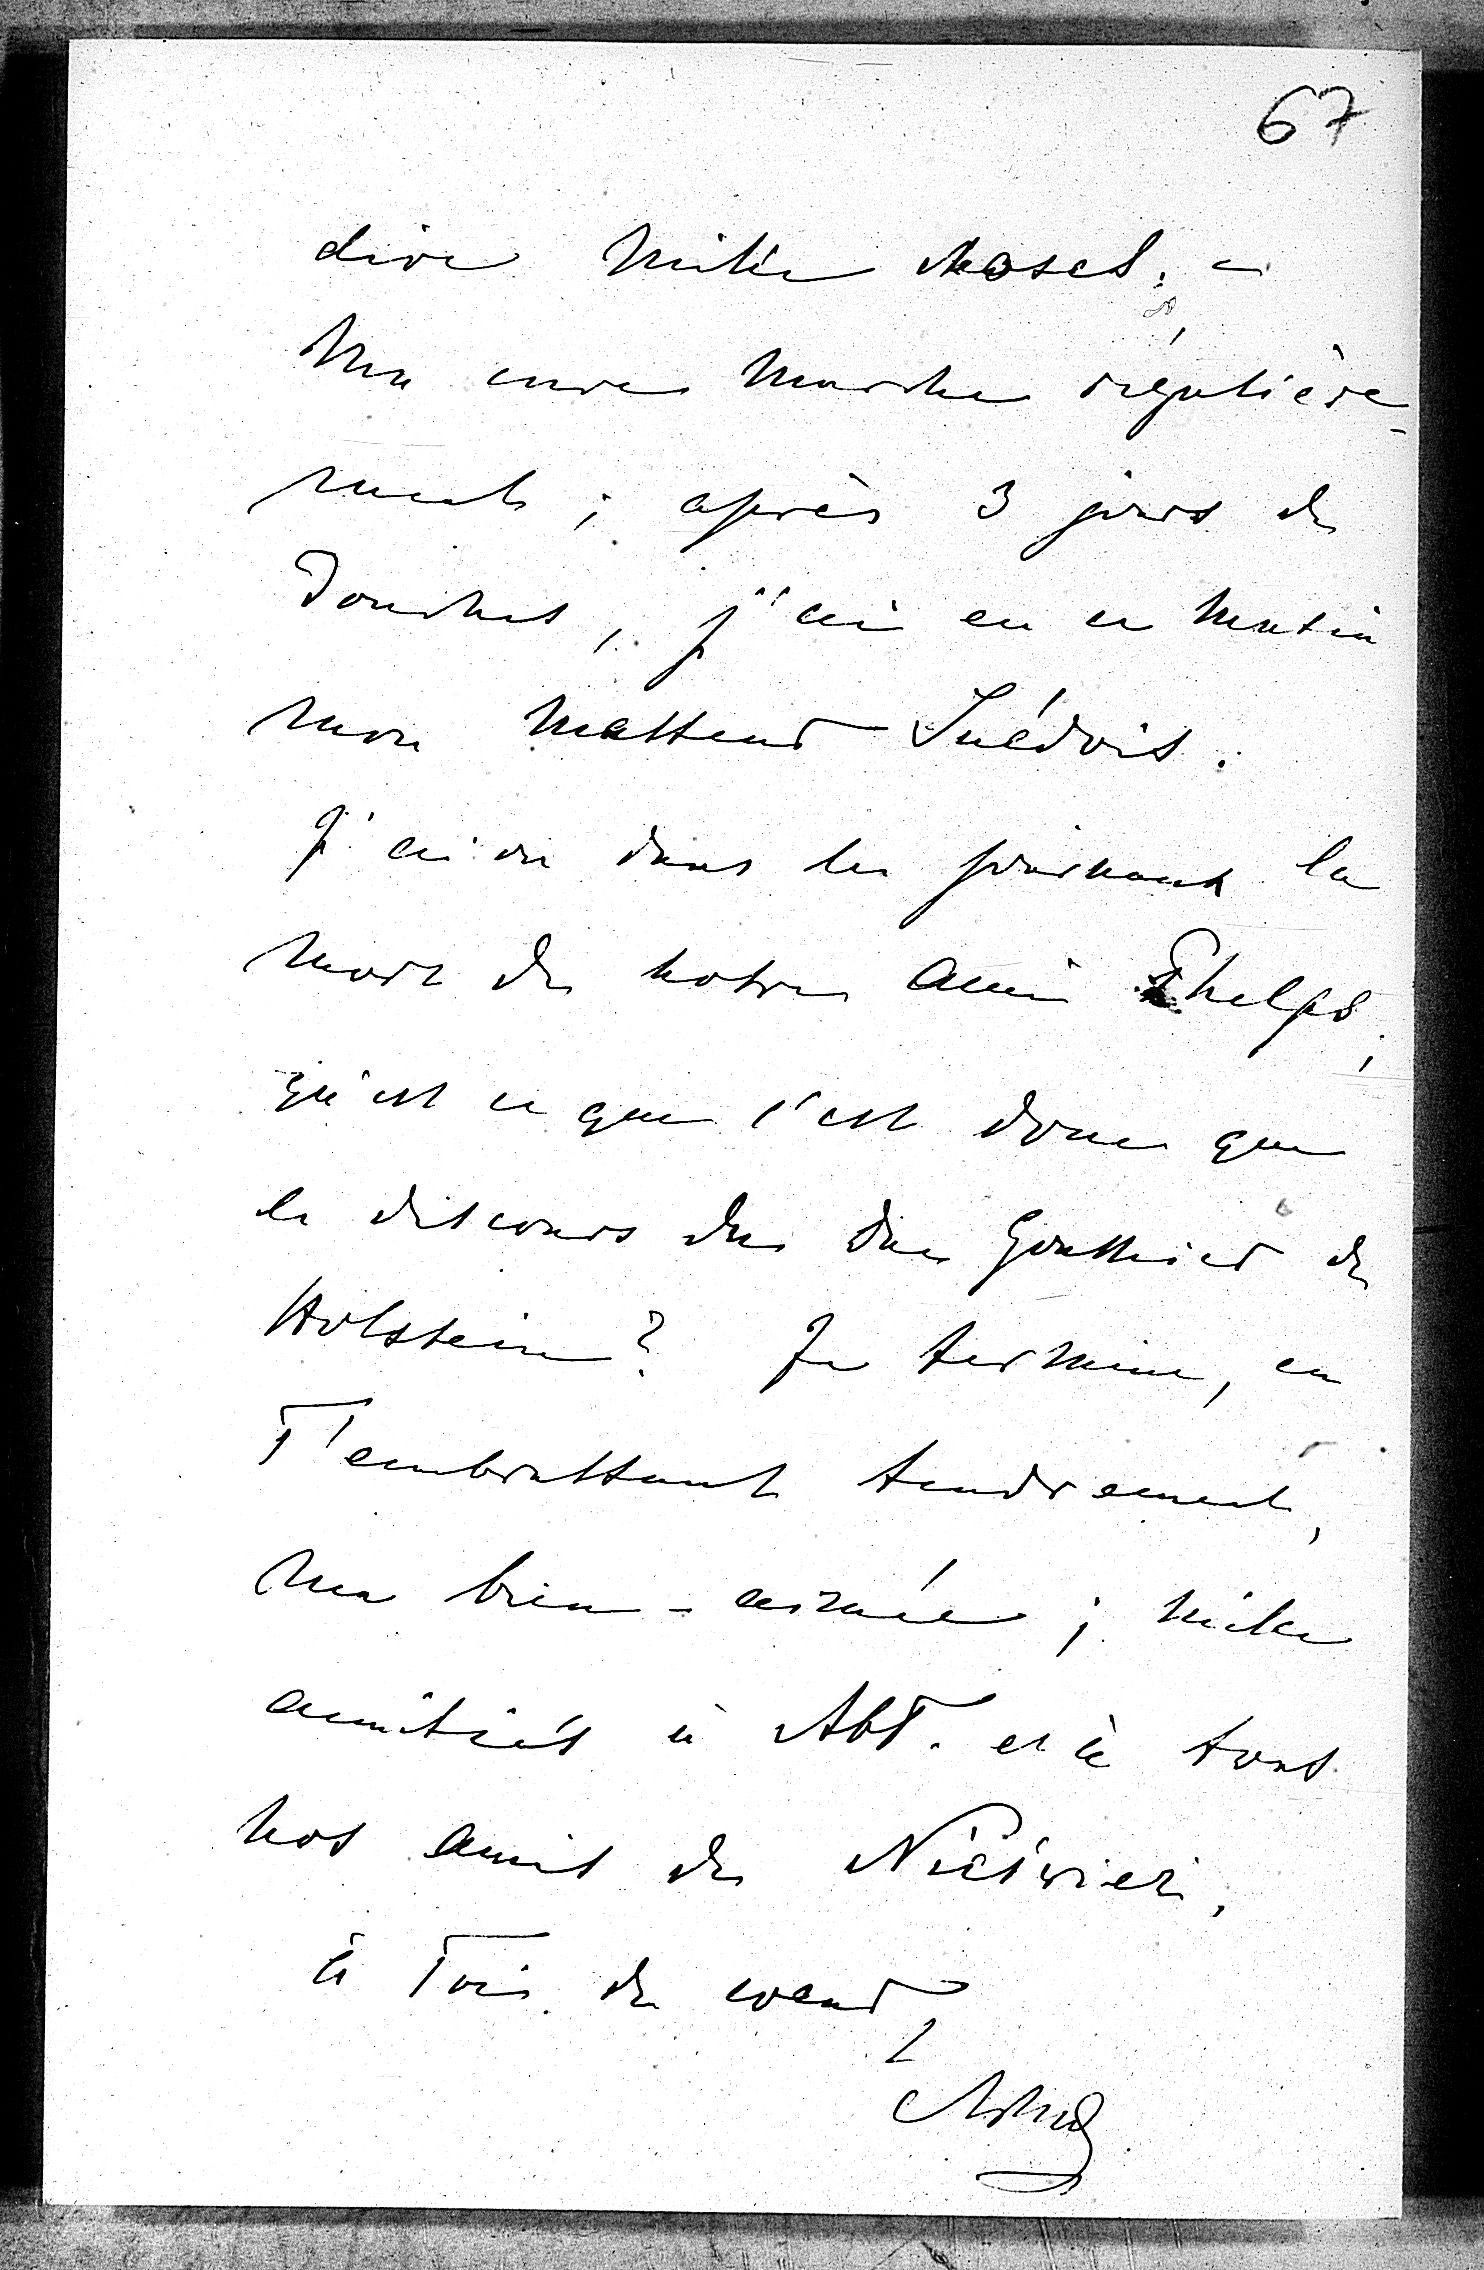 67
dire mille choses. –
Ma cure marche régulière-
ment ; après 3 jours de
douches, j'ai eu ce matin
mon masseur Suédois.
J'ai vu dans les journaux la
mort de notre ami Phelps ;
qu'est ce que c'est donc que
le discours du duc Gonthier de
Holstein ? Je termine, en
T'embrassant tendrement,
ma bien-aimée ; mille
amitiés à Abt. et à tous
nos amis de Nieśwież,
à Toi de coeur